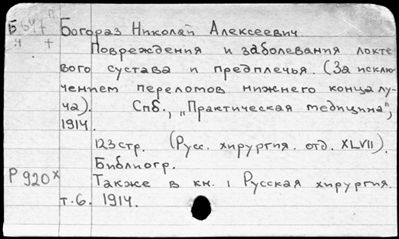 Богораз Николай Алексеевич
Повреждения и заболевания локте
вого сустава и предплечья. (За исклю
чением переломов нижнего конца лу-
ча). Спб., "Практическая медицина",
1914.
123 стр. (Русс. хирургия. отд. XLVII).
Библиогр.
Р 920х
Также в кн.: Русская хирургия.
т. 6. 1914.